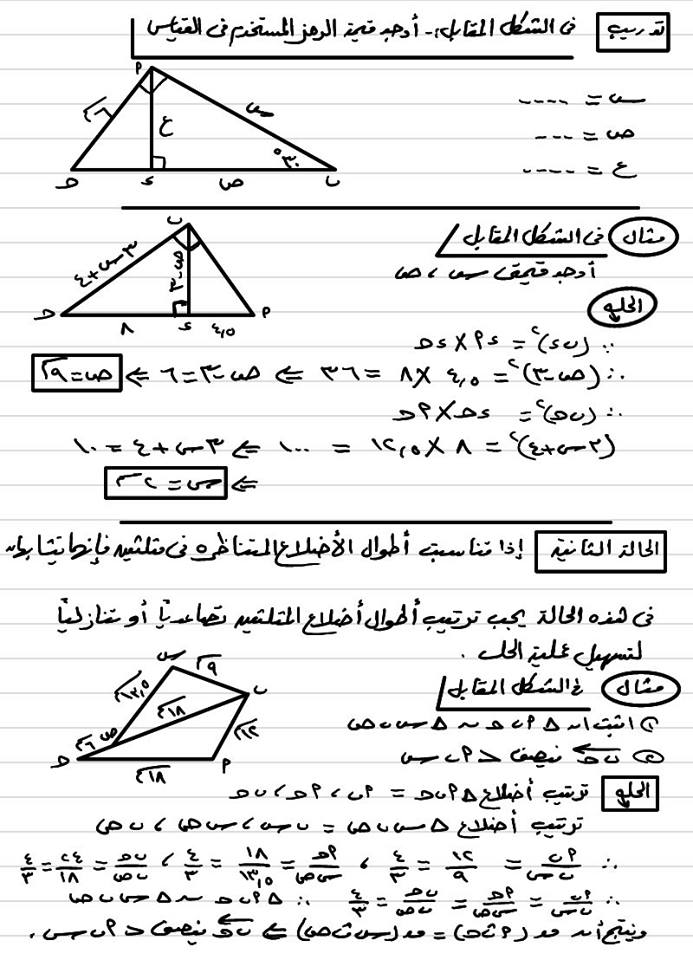 تدريب في الشكل المقابل :- أوجد قيمة الرمز المستخدم في القياس
س = ....
ص = ...
ع = ....
٦
س
ع
٣٠°
ص
ب
مثال في الشكل المقابل
أوجد قيمتي س ، ص
٣س+٤
ص-٣
٨
٤,٥
الحل
∵ (ب ء)² = ء أ × ء ح
∴ (ص-٣)² = ٤,٥ × ٨ = ٣٦ ⇐ ص-٣ = ٦ ⇐ ص = ٩
∴ (ب ح)² = ح ء × ح أ
(٣س+٤)² = ٨ × ١٢,٥ = ١٠٠ ⇐ ٣س+٤ = ١٠
⇐ س = ٢
الحالة الثانية إذا تناسبت أطوال الأضلاع المتناظرة في مثلثين فإنهما يتشابهان
في هذه الحالة يجب ترتيب أطوال أضلاع المثلثين تصاعدياً أو تنازلياً
لتسهيل عملية الحل .
مثال في الشكل المقابل
١٣,٥
٩
١٨
١٢
٦
١٨
① اثبت أن Δ أ ب ح ~ Δ س ب ص
② ب ح ينصف > أ ب س
الحل ترتيب أضلاع Δ أ ب ح = أ ب ، أ ح ، ب ح
ترتيب أضلاع Δ س ب ص = ب س ، س ص ، ب ص
∴ أ ب / ب س = ١٢ / ٩ = ٤ / ٣ ، أ ح / س ص = ١٨ / ١٣,٥ = ٤ / ٣ ، ب ح / ب ص = ٢٤ / ١٨ = ٤ / ٣
∴ أ ب / ب س = أ ح / س ص = ب ح / ب ص = ٤ / ٣ ∴ Δ أ ب ح ~ Δ س ب ص
وينتج أن ق (أ ب ح) = ق (س ب ص) ⇐ ب ح ينصف > أ ب س .